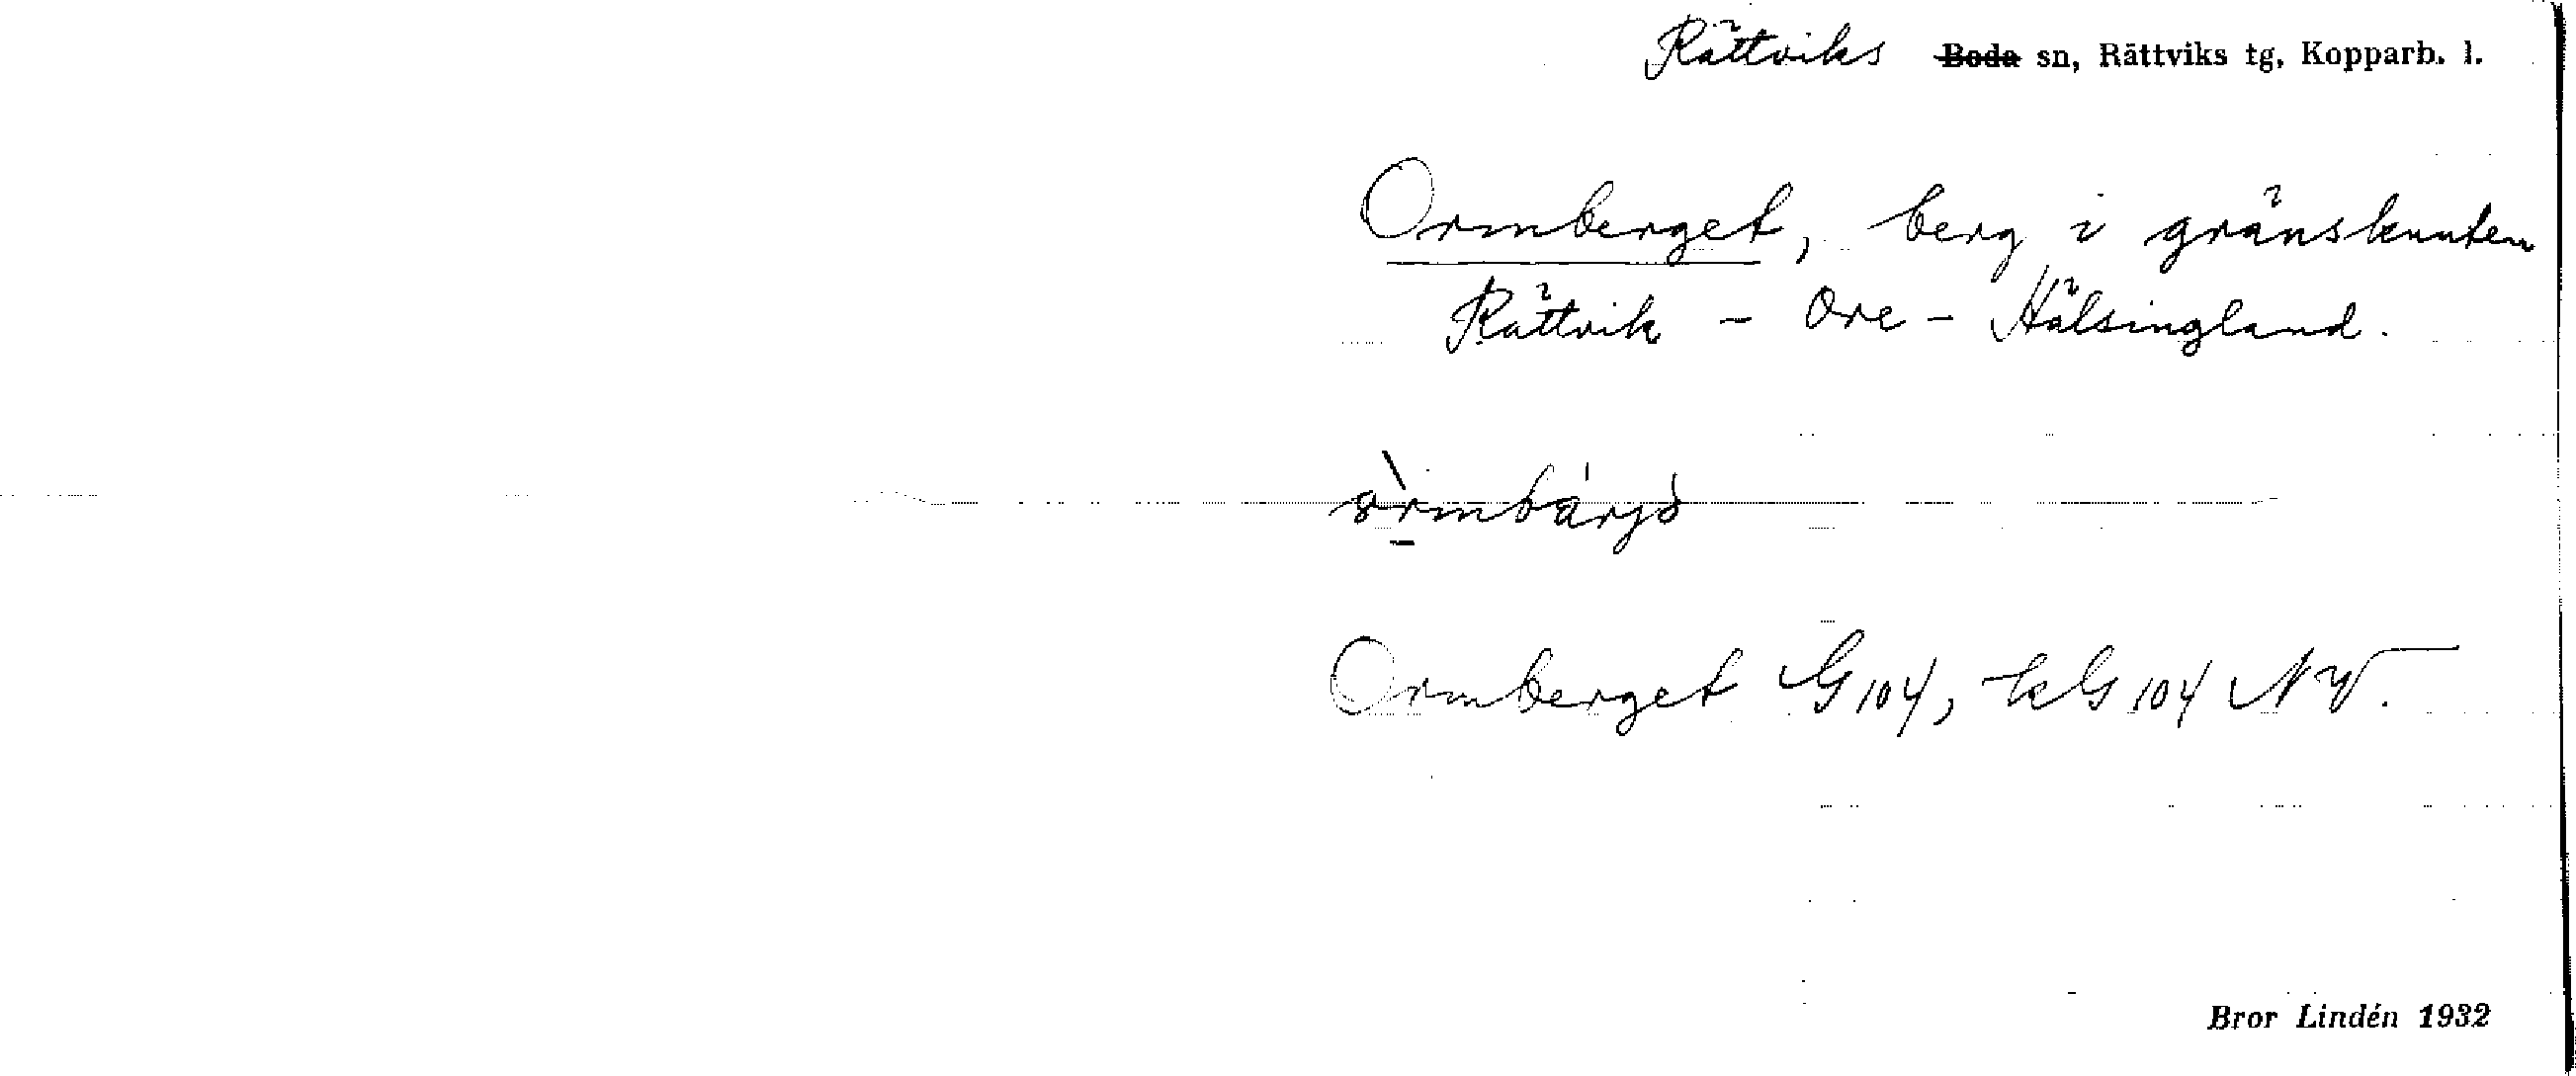 Rättviks ~~Boda~~ sn, Rättviks tg, Kopparb. l.
Ormberget, berg i gränsknuten
Rättvik - Ore - Hälsingland.
Ormberget G 104, kG 104 NV.
Bror Lindén 1932